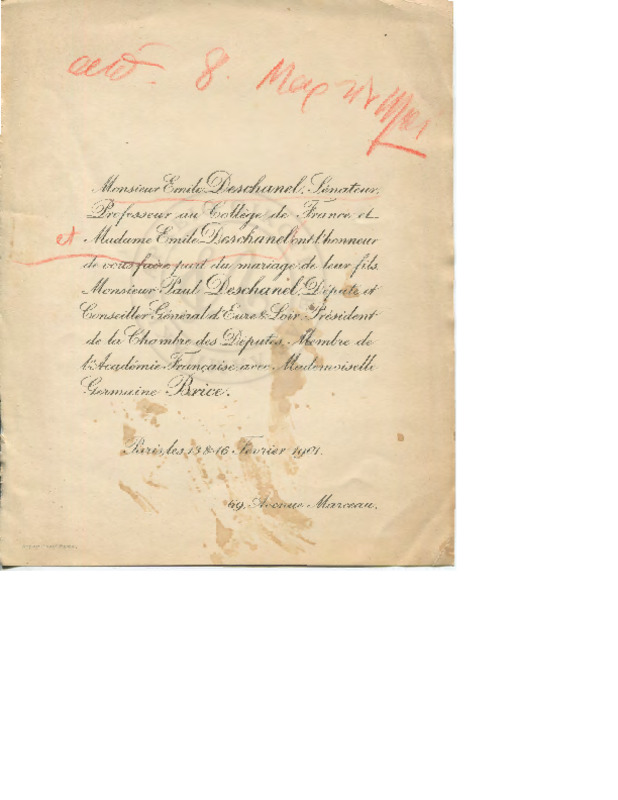 8.
Monsieur Emile Deschanel, Sénateur,
Professeur au Collège de France et
et
Madame Emile Deschanel ont l'honneur
de vous faire part du mariage de leur fils
Monsieur Paul Deschanel, Député et
Conseiller Général d'Eure & Loir, Président
de la Chambre des Députés, Membre de
l'Académie Française avec Mademoiselle
Germaine Brice.
Paris, les 13 & 16 Février 1901.
Avenue Marceau.